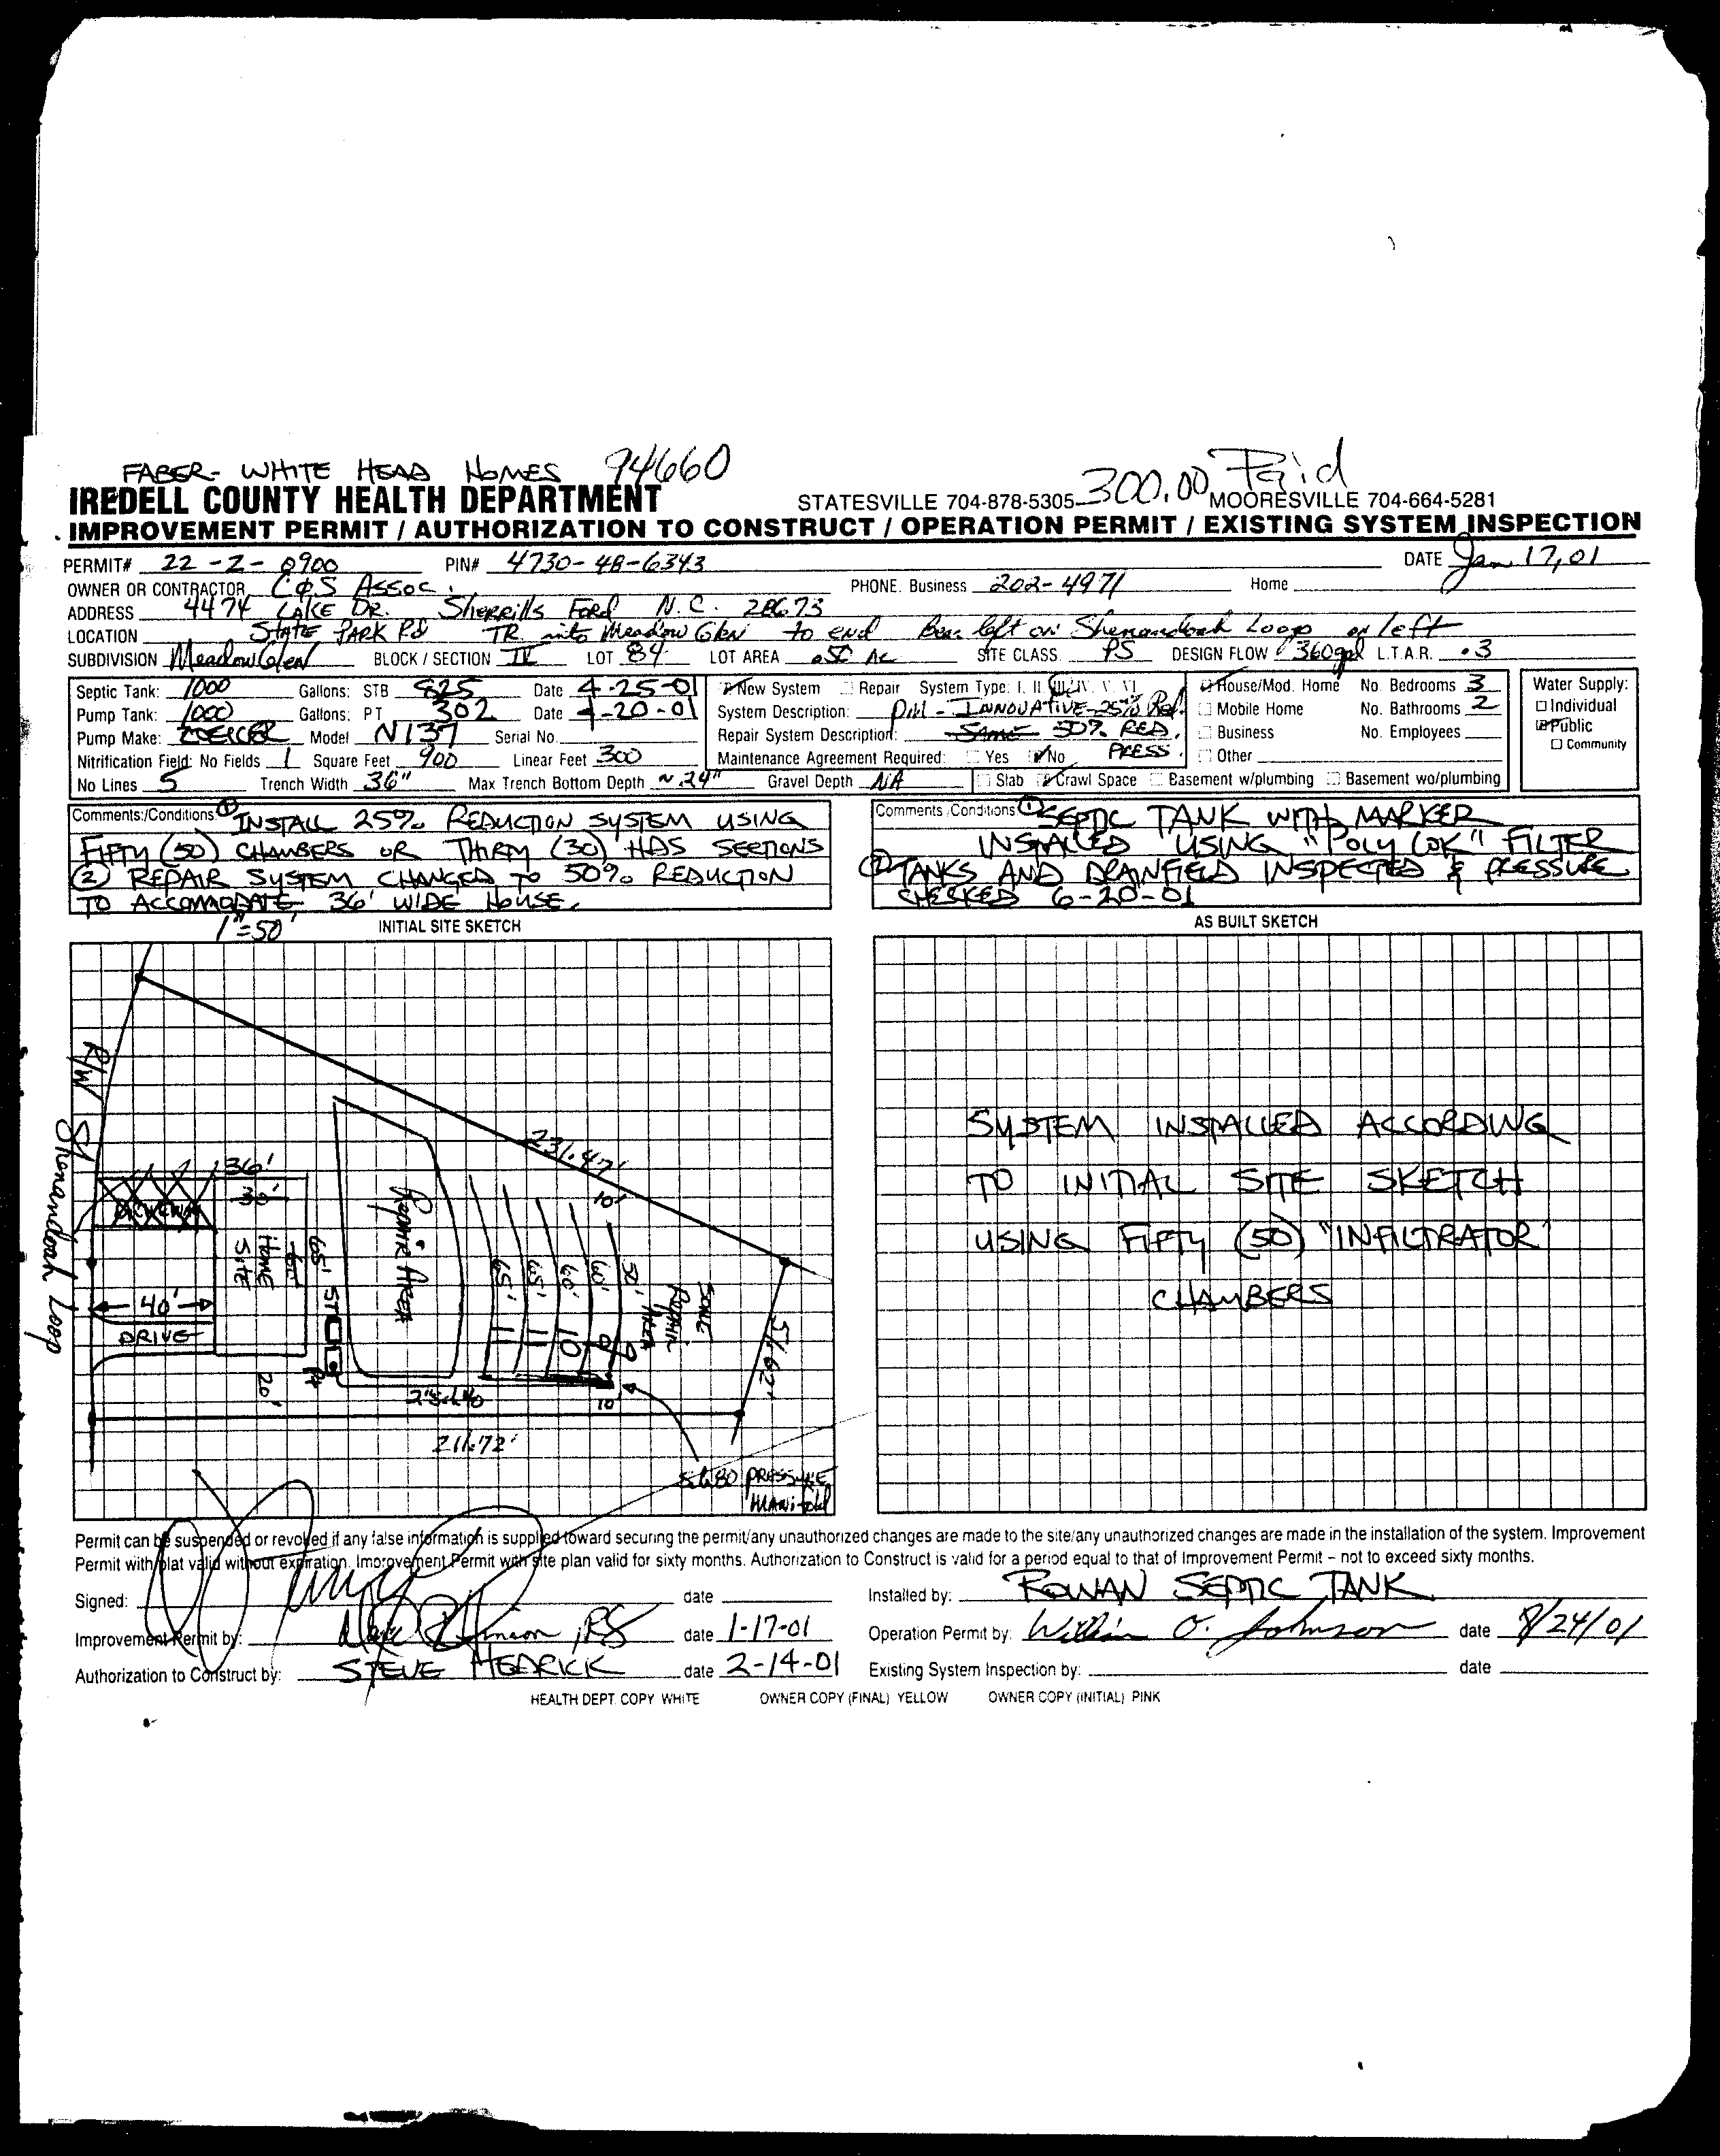 FABER- WHITE HEAD HOMES 94660
300.00 Paid
IREDELL COUNTY HEALTH DEPARTMENT STATESVILLE 704-878-5305 MOORESVILLE 704-664-5281
IMPROVEMENT PERMIT / AUTHORIZATION TO CONSTRUCT / OPERATION PERMIT / EXISTING SYSTEM INSPECTION
PERMIT# 22-Z-0900 PIN# 4730-48-6343 DATE Jan 17,01
OWNER OR CONTRACTOR C&S ASSOC. PHONE. Business 202-4971 Home
ADDRESS 4474 LAKE DR. Sherrills Ford N.C. 28673
LOCATION STATE PARK Rd TR into Meadow Glen to end Bear left on Shenandoah Loop on left
SUBDIVISION Meadow Glen BLOCK / SECTION IV LOT 84 LOT AREA .50 Ac SITE CLASS. PS DESIGN FLOW 360gal L.T.A.R. .3
Septic Tank: 1000 Gallons: STB 825 Date 4-25-01 New System Repair System Type: I. II. III. IV. V. VI House/Mod. Home No. Bedrooms 3 Water Supply:
Pump Tank: 1000 Gallons: PT 302 Date 4-20-01 System Description: - INNOVATIVE-25% Red. Mobile Home No. Bathrooms 2 Individual
Pump Make: ZOELLER Model N137 Serial No. Repair System Description: SAME 50% RED. Business No. Employees Public
Nitrification Field: No Fields 1 Square Feet 900 Linear Feet 300 Maintenance Agreement Required: Yes No PRESS. Other Community
No Lines 5 Trench Width 36" Max Trench Bottom Depth ~24" Gravel Depth NA Slab Crawl Space Basement w/plumbing Basement wo/plumbing
Comments:/Conditions ① INSTALL 25% REDUCTION SYSTEM USING
FIFTY (50) CHAMBERS OR THIRTY (30) HDS SECTIONS
② REPAIR SYSTEM CHANGED TO 50% REDUCTION
TO ACCOMMODATE 36' WIDE HOUSE.
Comments:/Conditions ① SEPTIC TANK WITH MARKER
INSTALLED USING "POLY LOK" FILTER
② TANKS AND DRAINFIELD INSPECTED & PRESSURE
CHECKED 6-20-01
1"=50' INITIAL SITE SKETCH
AS BUILT SKETCH
R/W
Shenandoah Loop
231.47'
36'
HOME SITE
65'
ST
Pt
40'
DRIVE
20'
Repair Area
65' 65' 60' 60' 50'
11 11 10
10'
SOME REPAIR AREA
51.62'
10'
211.72'
PRESSURE
Manifold
SYSTEM INSTALLED ACCORDING
TO INITIAL SITE SKETCH
USING FIFTY (50) "INFILTRATOR"
CHAMBERS
Permit can be suspended or revoked if any false information is supplied toward securing the permit/any unauthorized changes are made to the site/any unauthorized changes are made in the installation of the system. Improvement
Permit with plat valid without expiration. Improvement Permit with site plan valid for sixty months. Authorization to Construct is valid for a period equal to that of Improvement Permit – not to exceed sixty months.
Signed: date Installed by: ROWAN SEPTIC TANK
Improvement Permit by: RS date 1-17-01 Operation Permit by: William O. Johnson date 8/24/01
Authorization to Construct by: STEVE HEDRICK date 2-14-01 Existing System Inspection by: date
HEALTH DEPT. COPY WHITE OWNER COPY (FINAL) YELLOW OWNER COPY (INITIAL) PINK